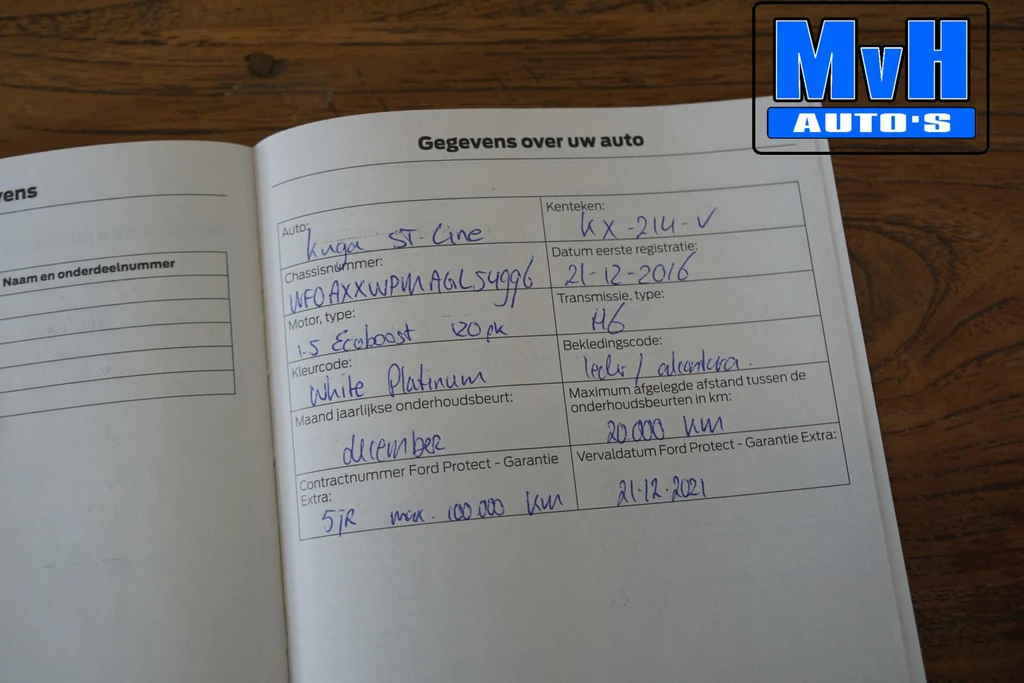 MvH
AUTO'S
vens
Naam en onderdeelnummer
Gegevens over uw auto
Auto:
Kuga ST-Line
Kenteken:
KX-214-V
Chassisnummer:
WF0AXXWPMAGL54996
Datum eerste registratie:
21-12-2016
Motor, type:
1.5 Ecoboost 120 pk
Transmissie, type:
H6
Kleurcode:
White Platinum
Bekledingscode:
leder / alcantara.
Maand jaarlijkse onderhoudsbeurt:
december
Maximum afgelegde afstand tussen de
onderhoudsbeurten in km:
20.000 KM
Contractnummer Ford Protect - Garantie
Extra:
5 jR max. 100.000 KM
Vervaldatum Ford Protect - Garantie Extra:
21-12-2021